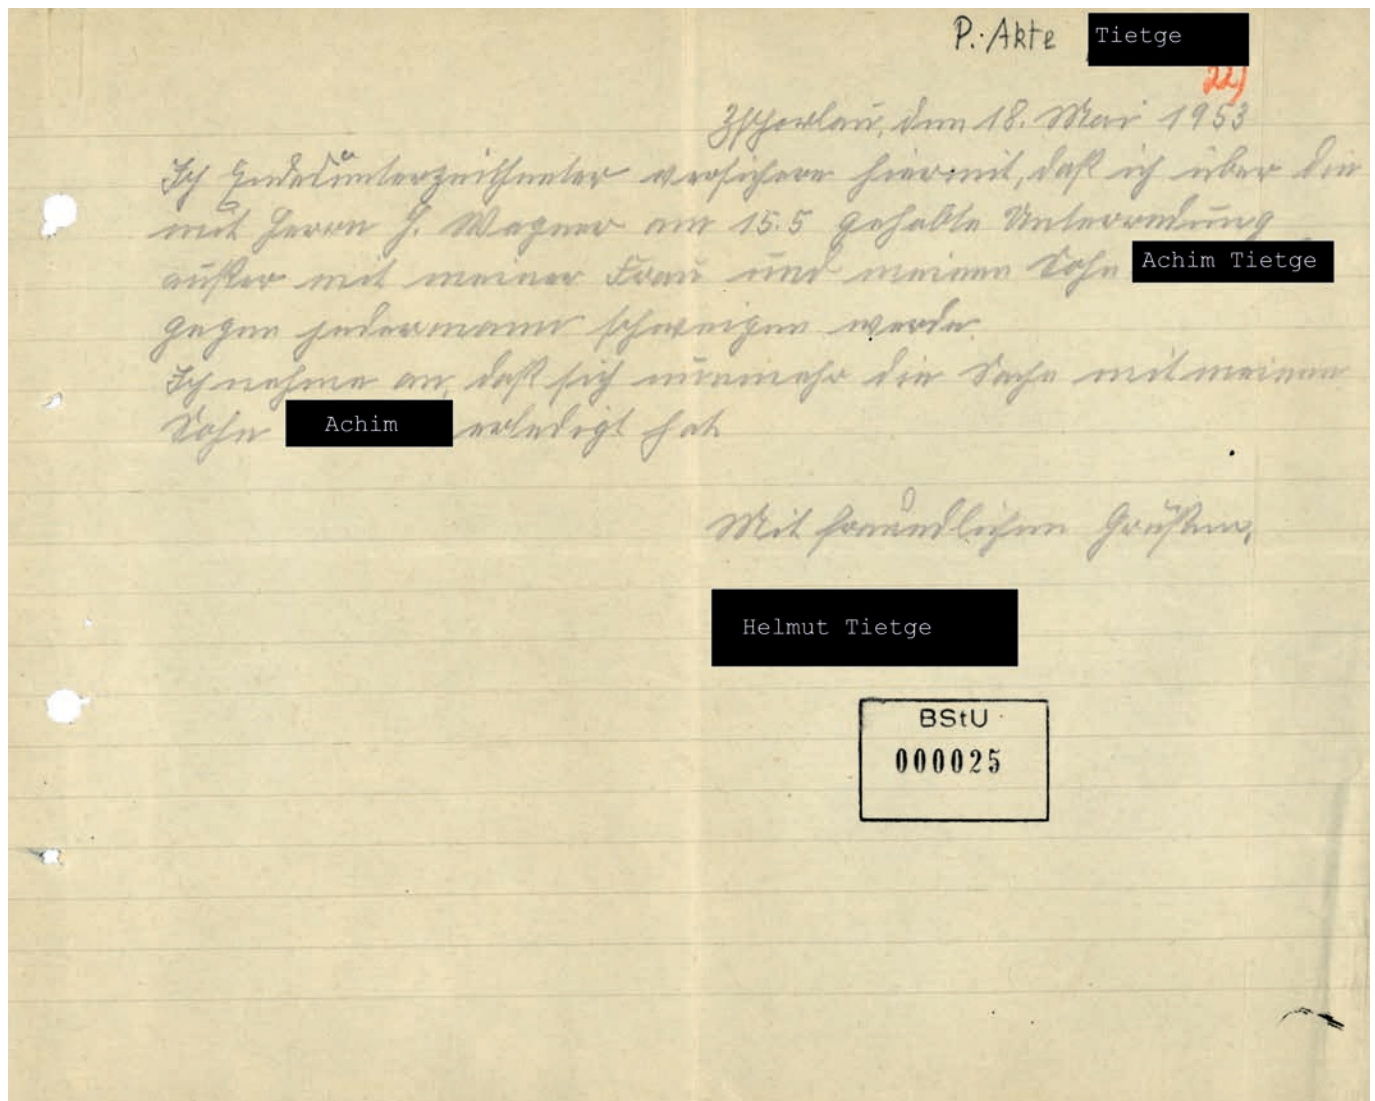 P.-Akte Tietge
22)
Zschorlau, den 18. Mai 1953
Ich Endesunterzeichneter versichere hiermit, daß ich über die
mit Herrn J. Wagner am 15.5 gehabte Unterredung
außer mit meiner Frau und meinen Sohn Achim Tietge
gegen jedermann schweigen werde.
Ich nehme an, daß sich nunmehr die Sache mit meinen
Sohn Achim erledigt hat.
Mit freundlichen Grüßen,
Helmut Tietge
BStU
000025